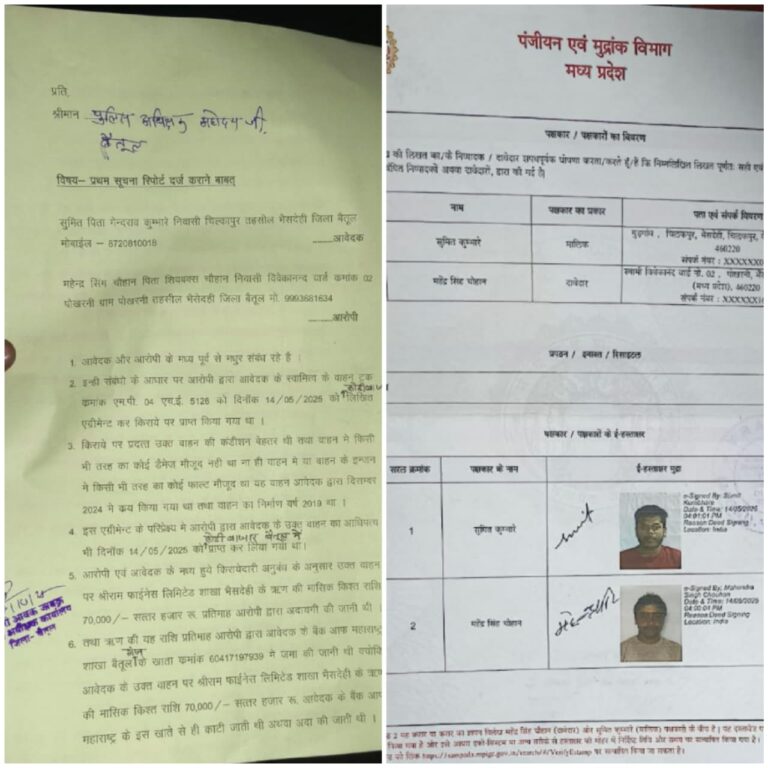 प्रति,
श्रीमान पुलिस अधिक्षक महोदय जी,
बैतूल
विषय– प्रथम सूचना रिपोर्ट दर्ज कराने बाबत्
सुमित पिता गेन्दराव कुम्भारे निवासी चिल्कापुर तहसील भैसदेही जिला बैतूल
मोबाईल – 8720810018 ........आवेदक
महेन्द्र सिंग चौहान पिता शिवबगस चौहान निवासी विवेकानन्द वार्ड कमांक 02
पोखरनी ग्राम पोखरनी तहसील भैसदेही जिला बैतूल मो. 9993681634
........आरोपी
1. आवेदक और आरोपी के मध्य पूर्व से मधुर संबंध रहे है ।
2. इन्ही संबंधो के आधार पर आरोपी द्वारा आवेदक के स्वामित्व के वाहन ट्रक
कमांक एम.पी. 04 एच.ई. 5128 को दिनॉक 14/05/2025 को लिखित
एग्रीमेन्ट कर किराये पर प्राप्त किया गया था ।
3. किराये पर प्रदत्त उक्त वाहन की कंडीशन बेहतर थी तथा वाहन मे किसी
भी तरह का कोई डैमेज मौजूद नही था ना ही वाहन मे या वाहन के इन्जन
मे किसी भी तरह का कोई फाल्ट मौजूद था यह वाहन आवेदक द्वारा दिसम्बर
2024 मे कय किया गया था तथा वाहन का निर्माण वर्ष 2019 था ।
4. इस एग्रीमेन्ट के परिप्रेक्ष्य मे आरोपी द्वारा आवेदक के उक्त वाहन का आधिपत्य
भी दिनॉक 14/05/2025 को प्राप्त कर लिया गया था।
5. आरोपी एवं आवेदक के मध्य हुये किरायेदारी अनुबंध के अनुसार उक्त वाहन
पर श्रीराम फाईनेंस लिमिटेड शाखा भैसदेही के ऋण की मासिक किश्त राशि
70,000/– सत्तर हजार रू. प्रतिमाह आरोपी द्वारा अदायगी की जानी थी ।
6. तथा ऋण की यह राशि प्रतिमाह आरोपी द्वारा आवेदक के बैंक आफ महाराष्ट्र
शाखा बैतूल के खाता कमांक 60417197939 मे जमा की जानी थी क्योंकि
आवेदक के उक्त वाहन पर श्रीराम फाईनेंस लिमिटेड शाखा भैसदेही के ऋण
की मासिक किश्त राशि 70,000/– सत्तर हजार रू. आवेदक के बैंक आफ
महाराष्ट्र के इस खाते से ही काटी जाती थी अथवा अदा की जाती थी ।
पंजीयन एवं मुद्रांक विभाग
मध्य प्रदेश
पक्षकार / पक्षकारों का विवरण
नाम पक्षकार का प्रकार पता एवं संपर्क विवरण
सुमित कुम्भारे मालिक
460220
संपर्क नंबर : XXXXXX
महेंद्र सिंह चौहान दावेदार स्वामी विवेकानंद वार्ड नं. 02 ,
(मध्य प्रदेश), 460220
संपर्क नंबर : XXXXXX
पक्षकार / पक्षकारों के ई-हस्ताक्षर
सरल क्रमांक पक्षकार के नाम ई-हस्ताक्षर मुद्रा
1 सुमित कुम्भारे
e-Signed By: Sumit
Kumbhare
Date & Time: 14/05/2025
04:01:01 PM
Reason:Deed Signing
Location: India
2 महेंद्र सिंह चौहान
e-Signed By: Mahendra
Singh Chouhan
Date & Time: 14/05/2025
04:00:01 PM
Reason:Deed Signing
Location: India